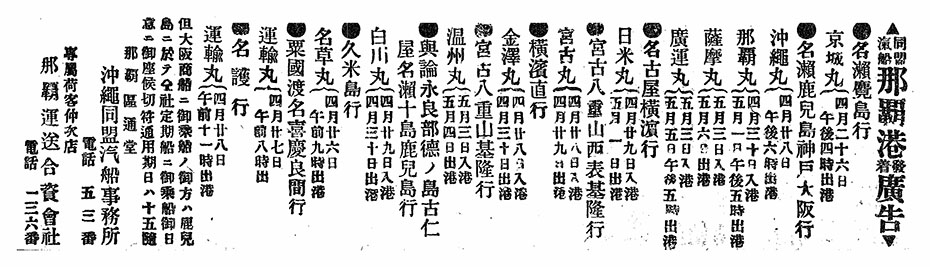 ▲同盟汽船那覇港發着廣告▼
●名瀨鹿島行
京城丸 四月二十六日
午後四時出港
●名瀨鹿兒島神戸大阪行
沖繩丸 四月廿八日
午後六時出港
那覇丸 五月一日
午後五時出港
薩摩丸 五月三日入港
五月六日出港
廣運丸 五月三日入港
五月五日午後五時出港
●名古屋橫濱行
日米丸 四月廿九日入港
五月一日出港
●宮古八重山西表基隆行
宮古丸 四月廿九日入港
四月三十日出港
●橫濱直行
金澤丸 四月廿八日入港
四月三十日出港
●宮古八重山基隆行
温州丸 五月三日入港
五月四日出港
●與論永良部德ノ島古仁
屋名瀨十島鹿兒島行
白川丸 四月廿九日入港
四月三十日出港
●久米島行
名草丸 四月廿六日
午前九時出港
●粟國渡名喜慶良間行
運輸丸 四月廿七日
午前八時出港
●名護行
運輸丸 四月廿八日
午前十一時出港
但大阪商船ニ御乘船ノ御方ハ鹿兒
島ニ於テ仝社定期船ニ御乘船御日
意ニ御座候切符通用期日ハ十五隨
那覇區通堂
沖繩同盟汽船事務所
電話 五三番
專屬荷客仲次店
那覇運送合資會社
電話 一三六番